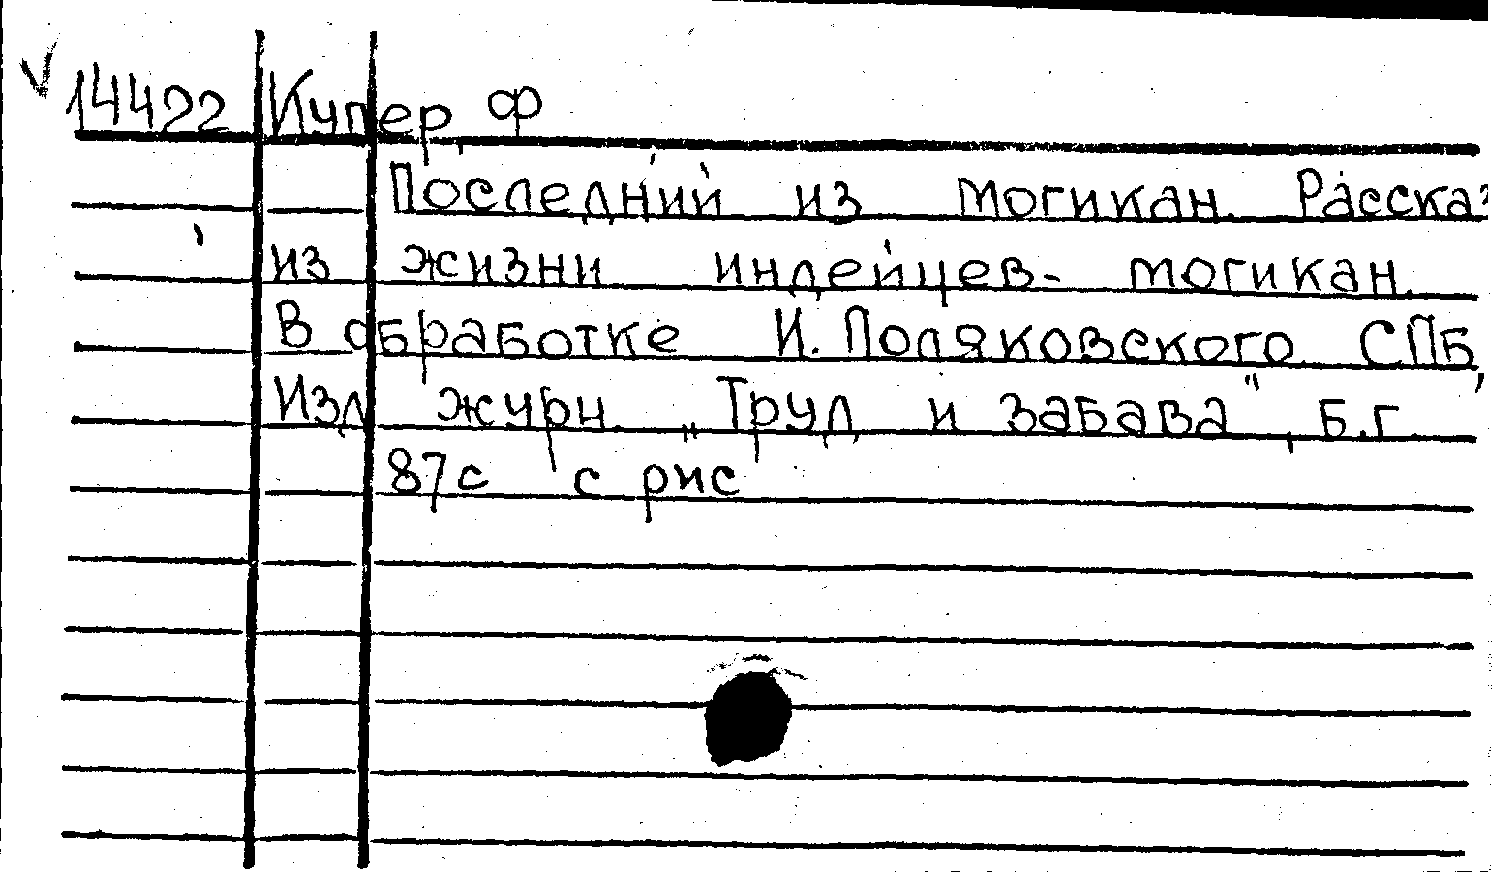 14422 Купер, Ф
Последний из могикан. Рассказ
из жизни индейцев- могикан.
В обработке И. Поляковского СПБ,
Изд журн. „Труд и забава", б.г.
87с с рис